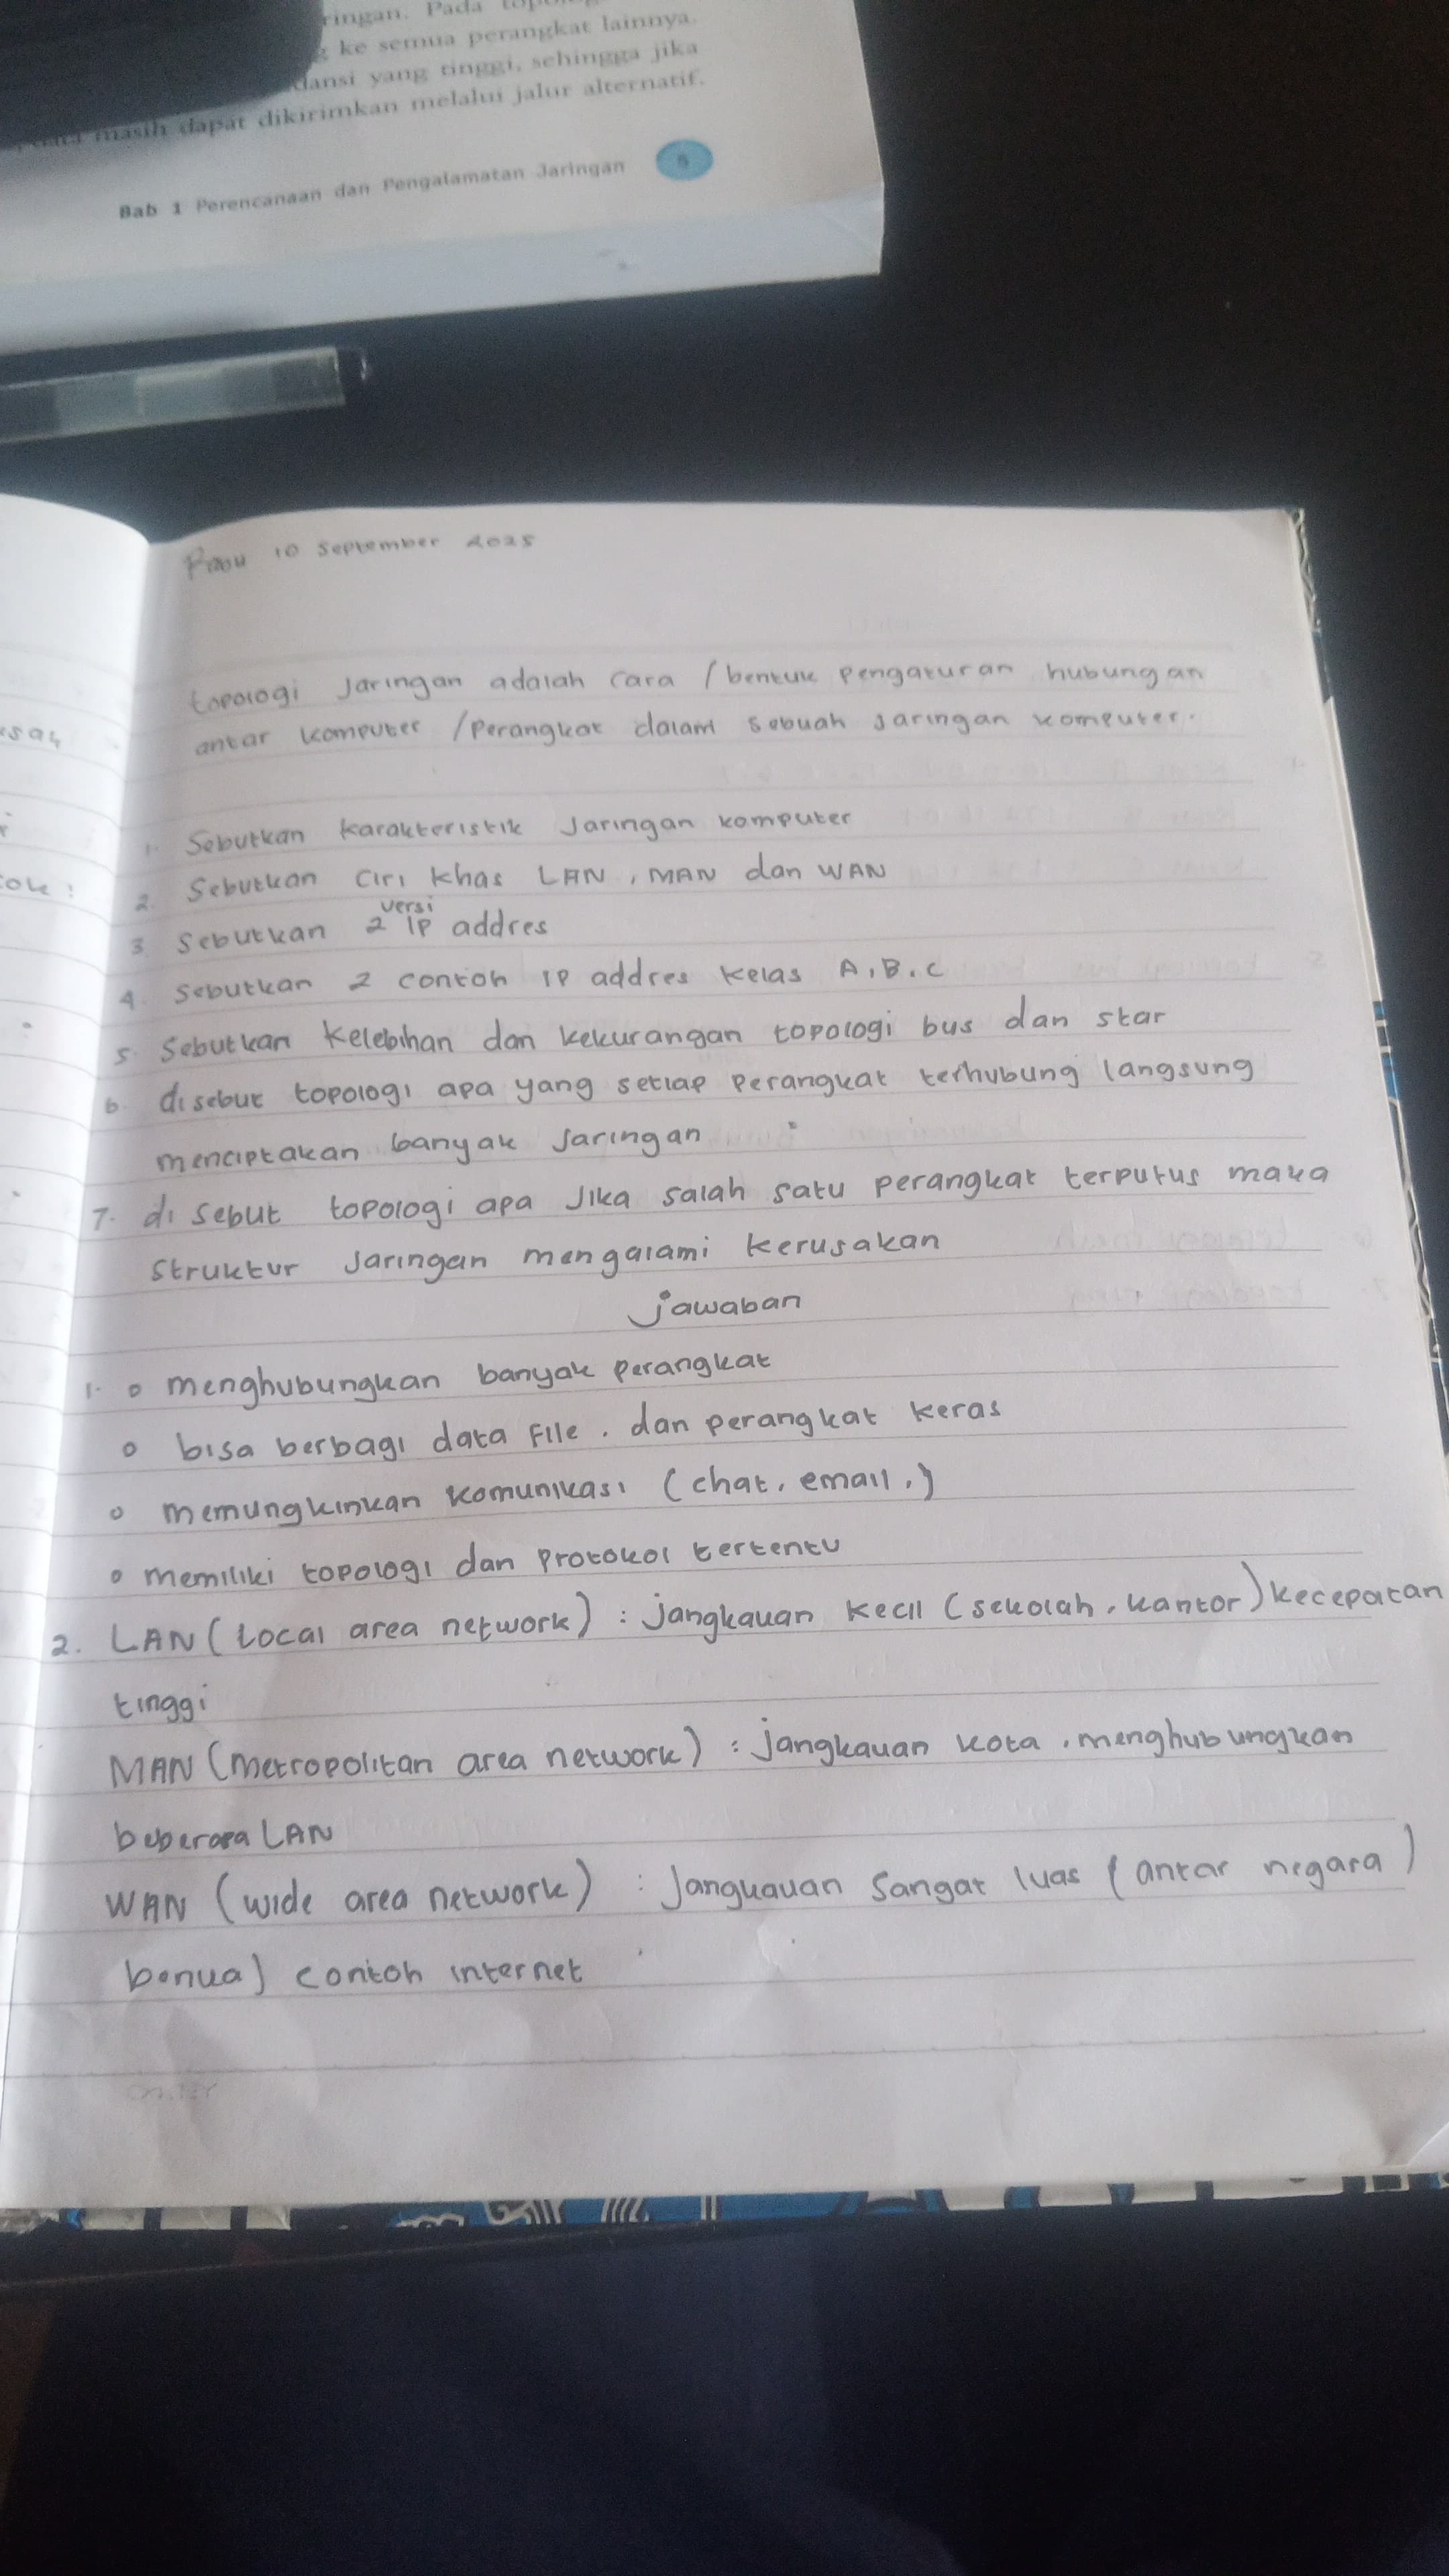 ringan. Pada
ke semua perangkat lainnya.
dansi yang tinggi, sehingga jika
masih dapat dikirimkan melalui jalur alternatif.
Bab 1 Perencanaan dan Pengalamatan Jaringan
10 September 2025
topologi Jaringan adalah cara / bentuk pengaturan hubungan
antar komputer / Perangkat dalam sebuah jaringan komputer.
1. Sebutkan karakteristik Jaringan komputer
2. Sebutkan ciri khas LAN, MAN dan WAN
versi
3. Sebutkan 2 IP addres
4. Sebutkan 2 contoh IP addres kelas A, B, C
5. Sebutkan kelebihan dan kekurangan topologi bus dan star
6. disebut topologi apa yang setiap perangkat terhubung langsung
menciptakan banyak jaringan
7. di sebut topologi apa Jika salah satu perangkat terputus maka
struktur jaringan mengalami kerusakan
jawaban
1. o menghubungkan banyak perangkat
o bisa berbagi data file, dan perangkat keras
o memungkinkan komunikasi (chat, email,)
o memiliki topologi dan protokol tertentu
2. LAN (Local area network) : jangkauan kecil (sekolah, kantor) kecepatan
tinggi
MAN (metropolitan area network) : jangkauan kota, menghubungkan
beberapa LAN
WAN (wide area network) : jangkauan sangat luas (antar negara)
benua) contoh internet